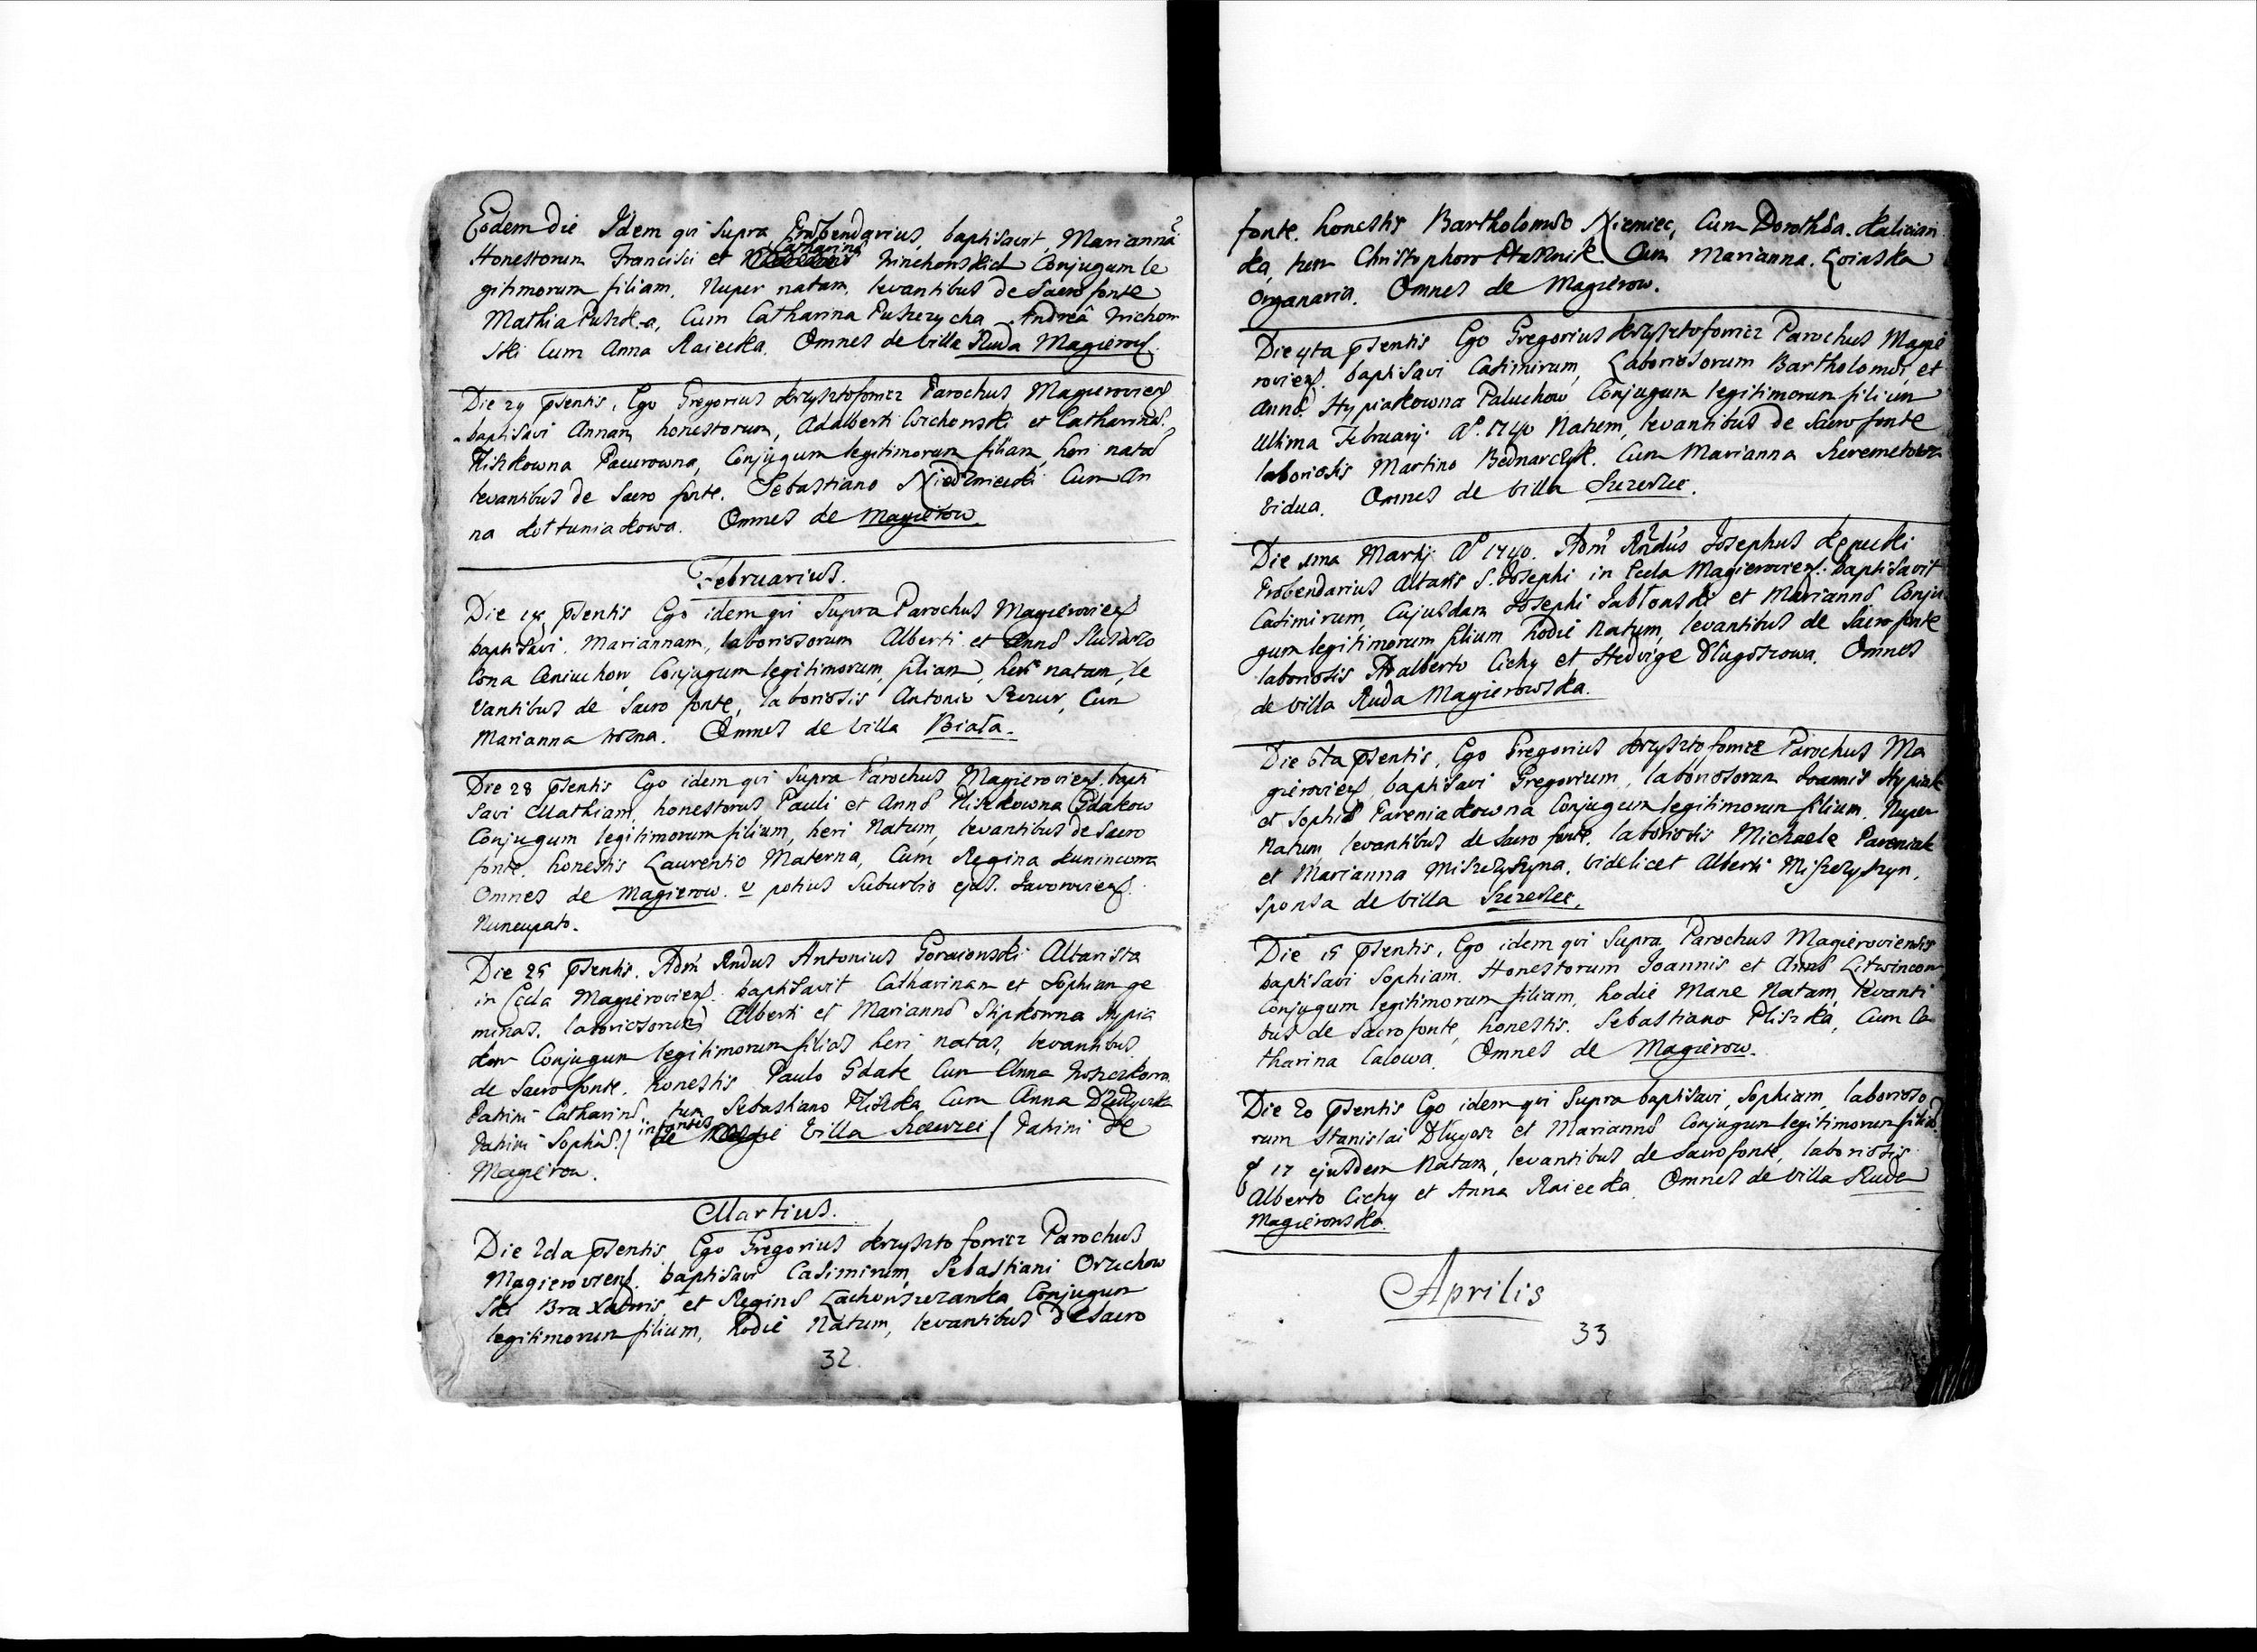 Eodem die Idem qui Supra Præbendarius, baptisavit, Mariannã
Catharinæ
Honestorum Francisci et Conjugum le
gitimorum filiam, Nuper natam, levantibus de Sacro fonte
Mathia Puszka, Cum Catharina Puszczycha Andreâ Wichow
ski Cum Anna Raiecka. Omnes de Villa Ruda Magierow.
Die 29 pñsentis, Ego Gregorius Krzysztofowicz Parochus Magierovien
baptisavi Annam honestorum, Adalberti Cichonski et Catharinæ
Pliszkowna Pacurowna, Conjugum legitimorum filiam, heri natã
levantibus de Sacro fonte. Sebastiano Niedzwiecki Cum An
na Kołtuniakowa. Omnes de Magierow.
Februarius.
Die pñsentis Ego idem qui Supra Parochus Magierovien
baptisavi Mariannam, laboriosorum Alberti et Annæ
Conjugum legitimorum, filiam, heri natam, le
vantibus de Sacro fonte, laboriosis Antonio Cum
Marianna Omnes de Villa Biała.
Die 28 pñsentis Ego idem qui Supra Parochus Magierovien bapti
savi Mathiam, honestorum Pauli et Annæ Pliszkowna Gdakow
Conjugum legitimorum filium, heri Natum, levantibus de Sacro
fonte. honestis Laurentio Materna, Cum Regina
Omnes de Magierow. v potius Suburbio ejus. Javorovien
Nuncupato.
Die 25 pñsentis. Adm Rndus Antonius Goraionski Altarista
in Ecela Magierovien. baptisavit Catharinam et Sophiam ge
minas, laboriosorum Alberti et Mariannæ Stipkowna Hypia
kow Conjugum legitimorum filias heri natas, levantibus
de Sacro fonte. honestis Paulo Gdak Cum Anna
Patrini Catharinæ. tum Sebastiano Pliszka Cum Anna
infantes
Patrini Sophiæ. / de Villa / Patrini de
Magierow.
Martius.
Die 2da pñsentis Ego Gregorius Krzysztofowicz Parochus
Magierovien. baptisavi Casimirum, Sebastiani Orzechow
ski Braxatoris et Reginæ Conjugum
legitimorum filium, hodie Natum, levantibus de Sacro
32
fonte. honestis Bartholomæo Niemiec, Cum Dorothæa. Kalician
ka, tum Christophoro Ptasznik Cum Marianna.
Organaria. Omnes de Magierow.
Die 4ta pñsentis Ego Gregorius Krzysztofowicz Parochus Magie
rovien. baptisavi Casimirum, Laboriosorum Bartholomæi et
Annæ Hypiakowna Paluchow Conjugum legitimorum filium
Ultima Februarij Aº. 1740 Natum, levantibus de Sacro fonte
laboriosis Martino Bednarczyk. Cum Marianna
Vidua. Omnes de Villa Szczerzec.
Die 1ma Martij Aº 1740. Adm Rndus Josephus Kępucki
Præbendarius Altaris S. Josephi in Ecela Magierovien. baptisavit
Casimirum, Cujusdam Josephi Jabłonski et Mariannæ Conju
gum legitimorum filium hodie Natum, levantibus de Sacro fonte
laboriosis Adalberto Cichy et Hedvige Długoszowa. Omnes
de Villa Ruda Magierowska.
Die 6ta pñsentis, Ego Gregorius Krzysztofowicz Parochus Ma
gierovien baptisavi Gregorium, laboriosorum Joannis Hypiak
et Sophiæ Pareniakowna Conjugum legitimorum filium. Nuper
Natum levantibus de Sacro fonte. laboriosis Michaele Pareniak
et Marianna Miszczyszyna. Videlicet Alberti Miszczyszyn,
Sponsa de Villa Szczerzec.
Die 15 pñsentis, Ego idem qui Supra Parochus Magieroviensis
baptisavi Sophiam. Honestorum Joannis et Annæ Litwincow
Conjugum legitimorum filiam, hodie Mane Natam, levanti
bus de Sacro fonte, honestis. Sebastiano Pliszka, Cum Ca
tharina Calowa. Omnes de Magierow.
Die 20 pñsentis Ego idem qui Supra baptisavi, Sophiam laborioso
rum Stanislai Długosz et Mariannæ Conjugum legitimorum filiã
17 ejusdem Natam, levantibus de Sacro fonte, laboriosis
Alberto Cichy et Anna Raiecka Omnes de Villa Ruda
Magierowska.
Aprilis
33